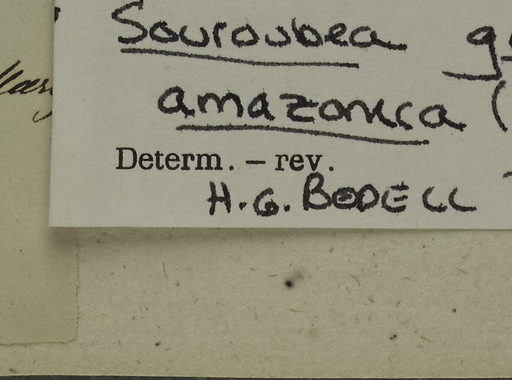 Souroubea
amazonica (
Determ. – rev.
H.G. BEDELL